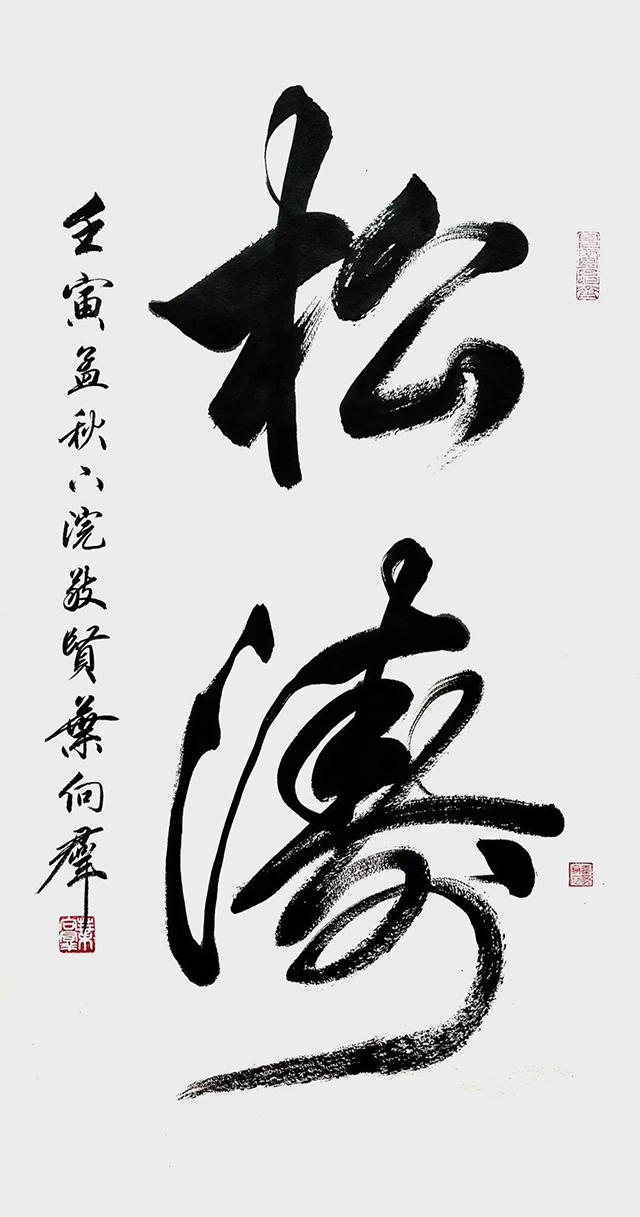 松濤
壬寅孟秋下浣敬賢葉向羣